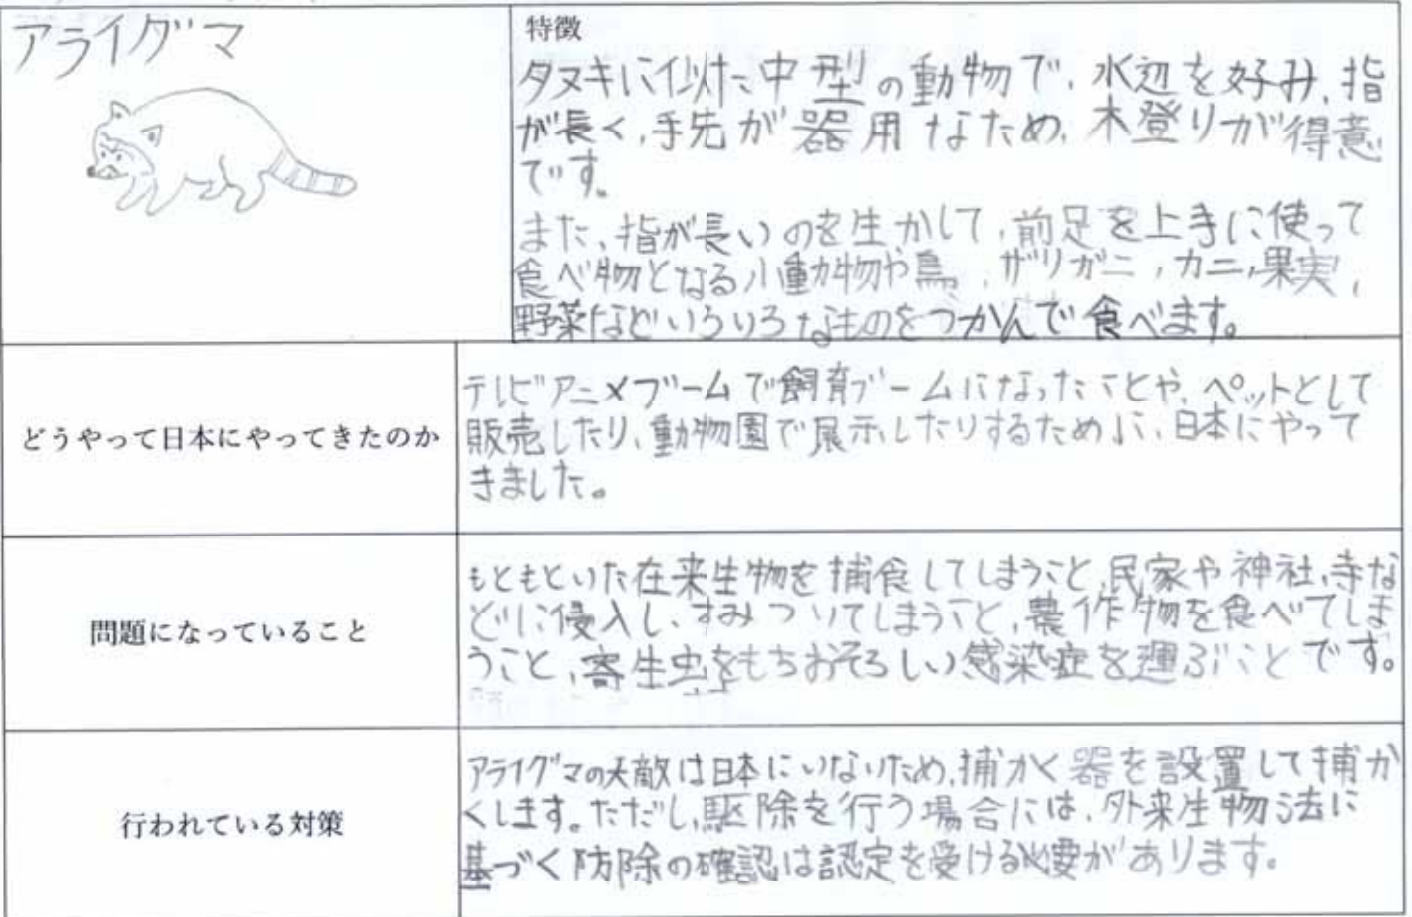 アライグマ
特徴
タヌキに似た中型の動物で、水辺を好み、指
が長く、手先が器用なため、木登りが得意
です。
また、指が長いのを生かして、前足を上手に使って
食べ物となる小動物や鳥、ザリガニ、カニ、果実、
野菜などいろいろなものをつかんで食べます。
どうやって日本にやってきたのか
テレビアニメブームで飼育ブームになったことや、ペットとして
販売したり、動物園で展示したりするために、日本にやって
きました。
問題になっていること
もともといた在来生物を捕食してしまうこと、民家や神社、寺な
どに侵入し、すみついてしまうこと、農作物を食べてしま
うこと、寄生虫をもちおそろしい感染症を運ぶことです。
行われている対策
アライグマの天敵は日本にいないため、捕かく器を設置して捕か
くします。ただし、駆除を行う場合には、外来生物法に
基づく防除の確認は認定を受ける必要があります。